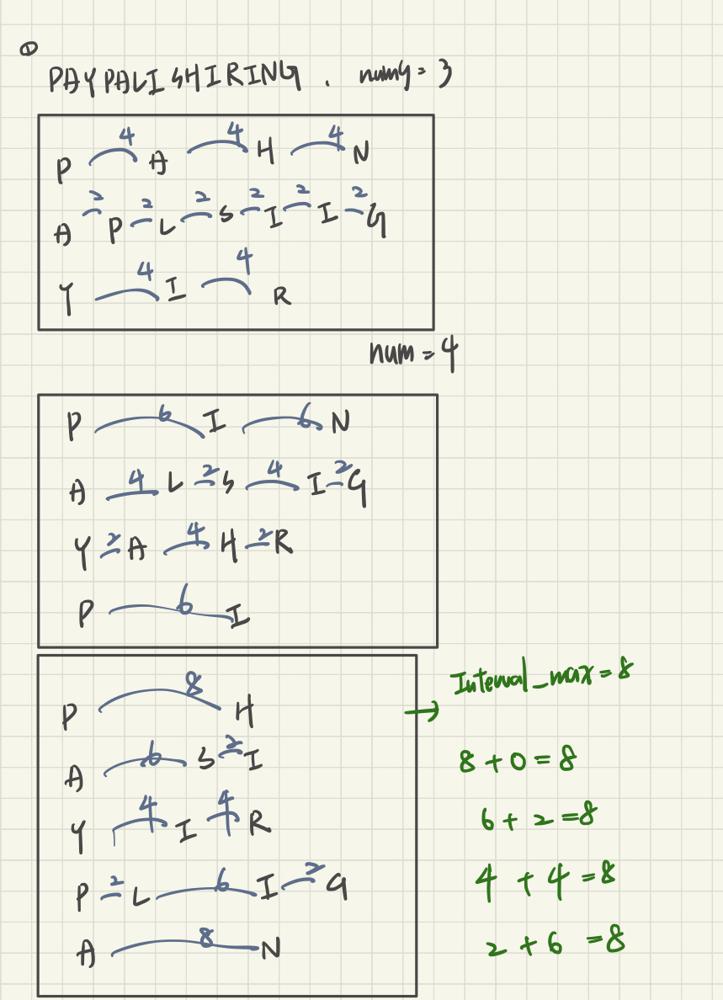 ①
PAYPALISHIRING. numy = 3
4 4 4
P A H N
2 2 2 2 2 2
A P L S I I G
4 4
Y I R
num = 4
P 6 I 6 N
A 4 L 2 S 4 I 2 G
Y 2 A 4 H 2 R
P 6 I
P 8 H
A 6 S 2 I
Y 4 I 4 R
P 2 L 6 I 2 G
A 8 N
→ Interval_max = 8
8 + 0 = 8
6 + 2 = 8
4 + 4 = 8
2 + 6 = 8